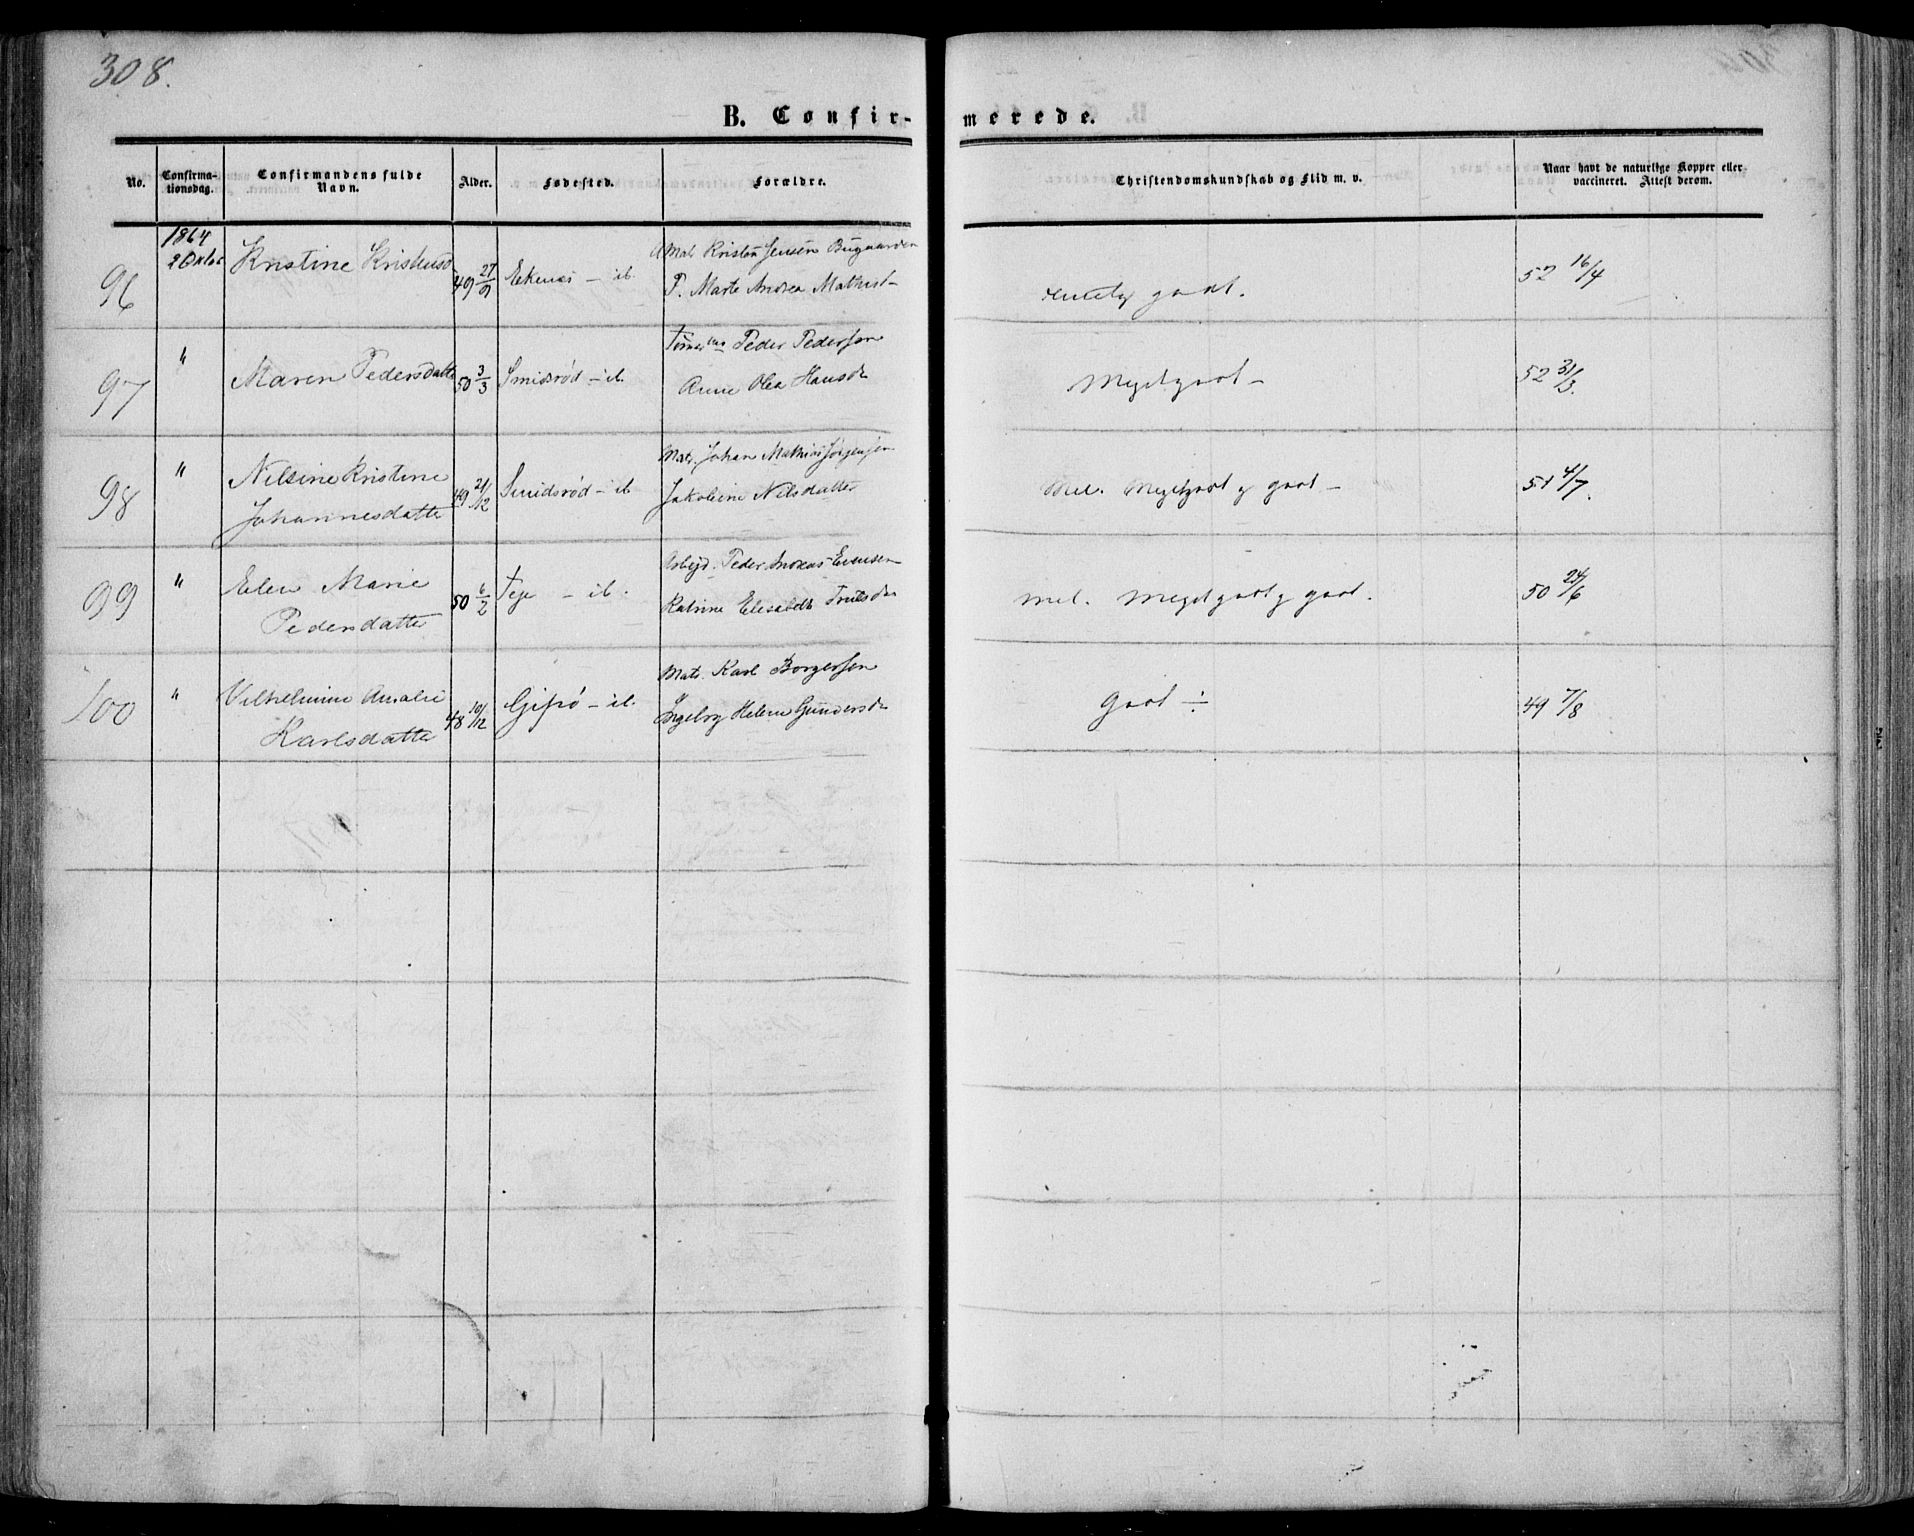 308.
B. Confirmerede.
No. Confirmationsdag. Confirmandens fulde Navn. Alder. Fødested. Forældre. Christendomskundskab og Flid m. v. Naar havt de naturlige Kopper eller vaccineret. Attest derom.
1864
96 2 Oktor Kristine Kristensd 49 27/9 Ekenes - ib. Mat. Kristen Jensen Bugaarden
P. Marte Andrea Mathist - godt. 52 16/4
97 " Maren Pedersdatter 50 3/3 Smidsrød - ib. Tømmermd Peder Pedersen
Anne Olea Hansdr Megetgodt - 52 31/3.
98 " Nilsine Kristine 49 21/12 Smidsrød - ib Matr. Johan Mathias Jørgensen
Johannesdatter Jakobine Nilsdatter Mel. Megetgodt og godt - 51 4/7.
99 " Elen Marie 50 6/2 Teje - ib. Arbejd. Peder Andreas Evensen
Pedersdatter Katrine Elisabeth Trulsdr Mel. Megetgodt og godt. 50 24/6
100 " Vilhelmine Amalie 48 10/12 Gipø - ib. Matr. Karl Borgersen
Karlsdatter Ingeborg Helene Gundersdr Godt ÷ 49 7/8